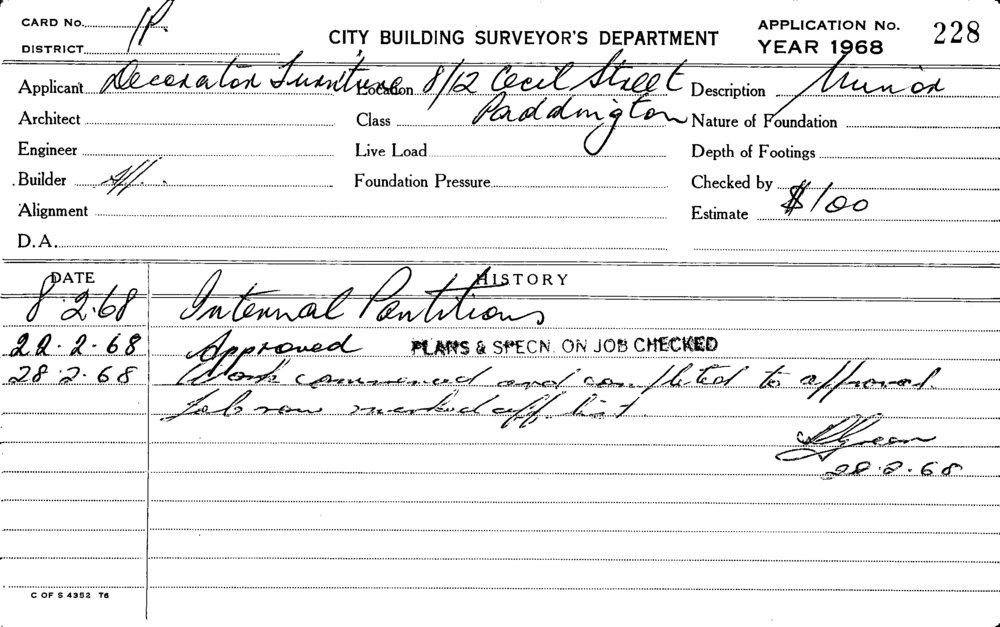 CARD No. 1P.
DISTRICT
CITY BUILDING SURVEYOR'S DEPARTMENT
APPLICATION No. 228
YEAR 1968
Applicant Decorator Furniture Location 8/12 Cecil Street Description Minor
Architect Class Paddington Nature of Foundation
Engineer Live Load Depth of Footings
Builder Foundation Pressure Checked by
Alignment Estimate $100
D.A.
DATE HISTORY
8.2.68 Internal Partitions
22.2.68 Approved PLANS & SPECN. ON JOB CHECKED
28.2.68 Work commenced and completed to approval.
Job now marked off list.
28.2.68
C OF S 4352 76